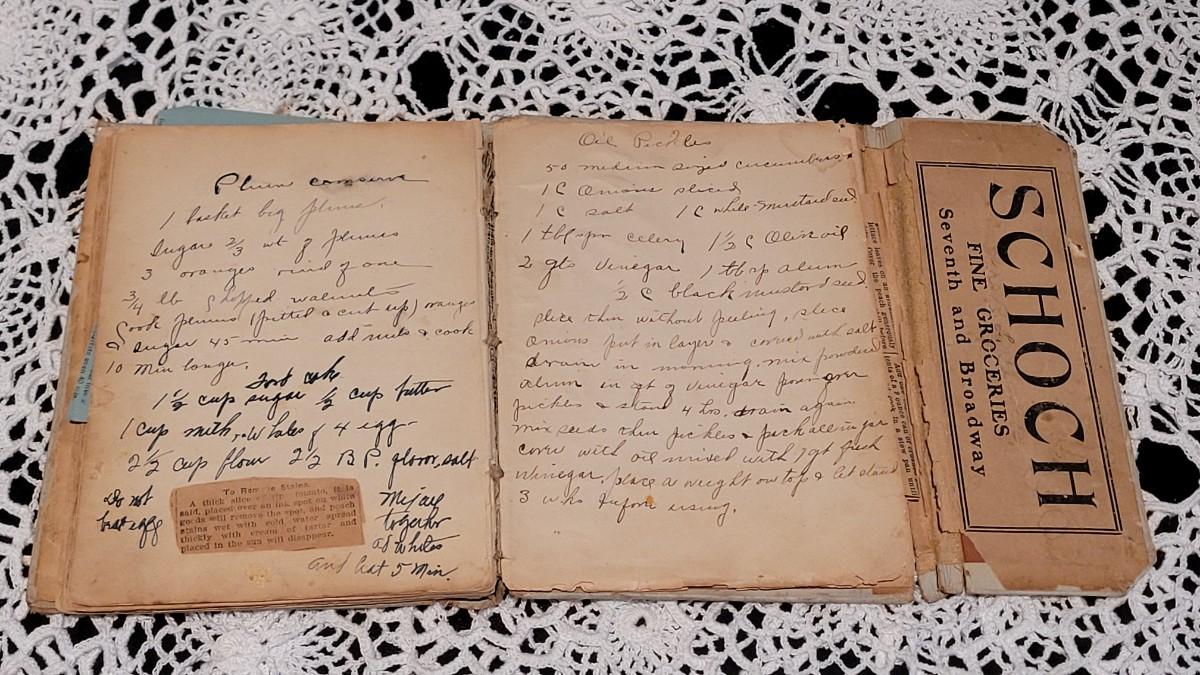 Plum conserve
1 basket big plums.
Sugar 2/3 wt of plums
3 oranges rind of one
3/4 lb chopped walnuts
Cook plums (pitted & cut up) oranges
& sugar 45 min add nuts & cook
10 min longer.
cake
1 1/2 cup sugar 1/2 cup butter
1 cup milk, Whites of 4 egg
2 1/2 cup flour 2 1/2 B P. flavor, salt
Do not
beat eggs
To Remove Stains.
A thick slice of ripe tomato, it is
said, placed over an ink spot on white
goods will remove the spot, and peach
stains wet with cold water spread
thickly with cream of tartar and
placed in the sun will disappear.
Mix all
together
add whites
and beat 5 min.
Oil Pickles
50 medium sized cucumbers
1 C Onions sliced
1 C salt 1 C white mustard seed
1 tblspn celery 1 1/2 C Olive oil
2 qts Vinegar 1 tbsp alum
1/2 C black mustard seed.
slice thin without peeling, slice
onions put in layer & cover with salt
drain in morning, mix powdered
alum in qt of vinegar pour over
pickles & stand 4 hrs. drain again
mix seeds thru pickles & pack all in jar
cover with oil mixed with 1 qt fresh
vinegar, place a weight on top & let stand
3 wks before using.
SCHOCH
FINE GROCERIES
Seventh and Broadway